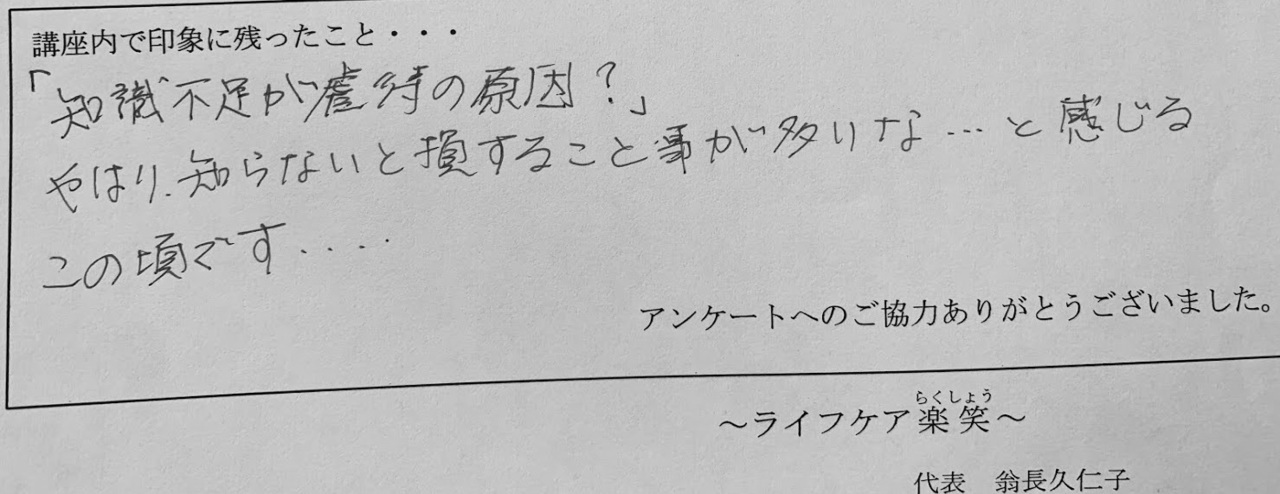 講座内で印象に残ったこと・・・
「知識不足が虐待の原因?」
やはり、知らないと損すること事が多いな…と感じる
この頃です....
アンケートへのご協力ありがとうございました。
らくしょう
~ライフケア楽笑~
代表 翁長久仁子